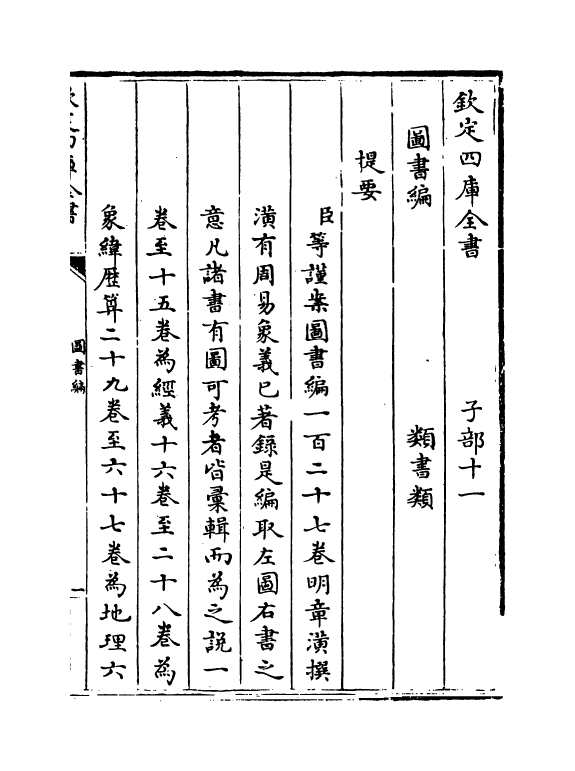 欽定四庫全書　子部十一
圖書編　類書類
提要
臣等謹案圖書編一百二十七卷明章潢撰
潢有周易象義已著錄是編取左圖右書之
意凡諸書有圖可考者皆彙輯而為之說一
卷至十五卷為經義十六卷至二十八卷為
象緯歷算二十九卷至六十七卷為地理六
圖書編
一